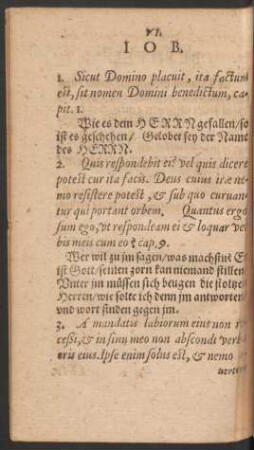 VI.
I O B.
1. Sicut Domino placuit, ita factum
est, sit nomen Domini benedictum, ca-
pit. 1.
Wie es dem HERRN gefallen/so
ist es geschehen/ Gelobet sey der Name
des HERRN.
2. Quis respondebit ei? vel quis dicere
potest cur ita facis. Deus cuius iræ ne-
mo resistere potest, & sub quo curuan-
tur qui portant orbem. Quantus ergo
sum ego, vt respondeam ei & loquar ver
bis meis cum eo? cap. 9.
Wer wil zu jm sagen/was machstu? Er
ist Gott/seinen zorn kan niemand stillen
Vnter jm müssen sich beugen die stoltze
Herren/wie solte ich denn jm antworten
vnd wort finden gegen jm.
3. A mandatis labiorum eius non re-
cessi, & in sinu meo non abscondi verb
oris eius. Ipse enim solus est, & nemo